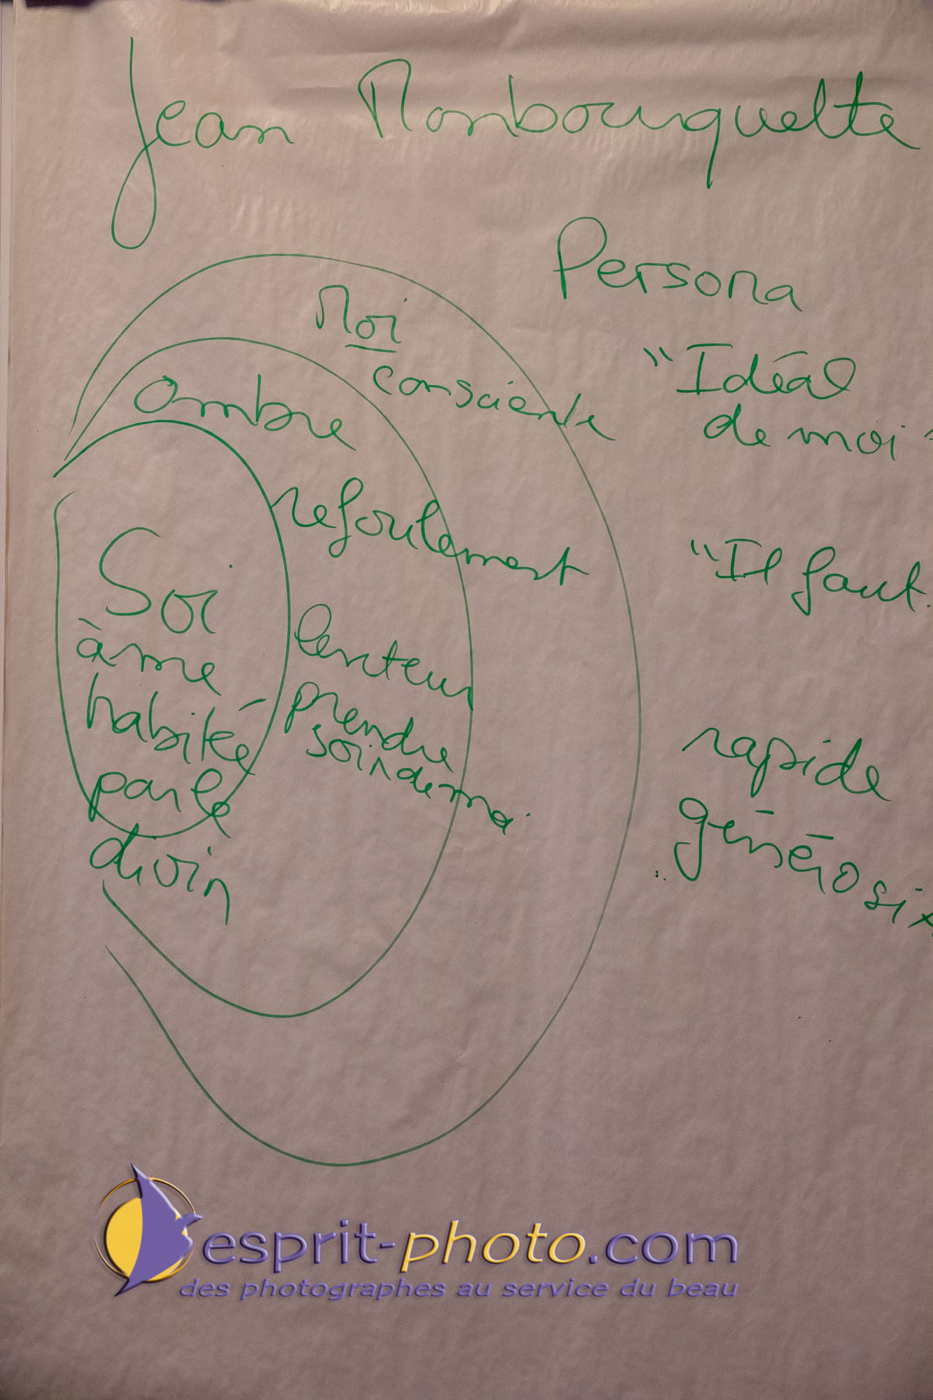 Jean Monbourquette
Persona
"Idéal
de moi"
"Il faut.
rapide
générosit
Moi
consciente
ombre
refoulement
lenteur
prendre
soin de moi
Soi
âme
habité
par le
divin
esprit-photo.com
des photographes au service du beau